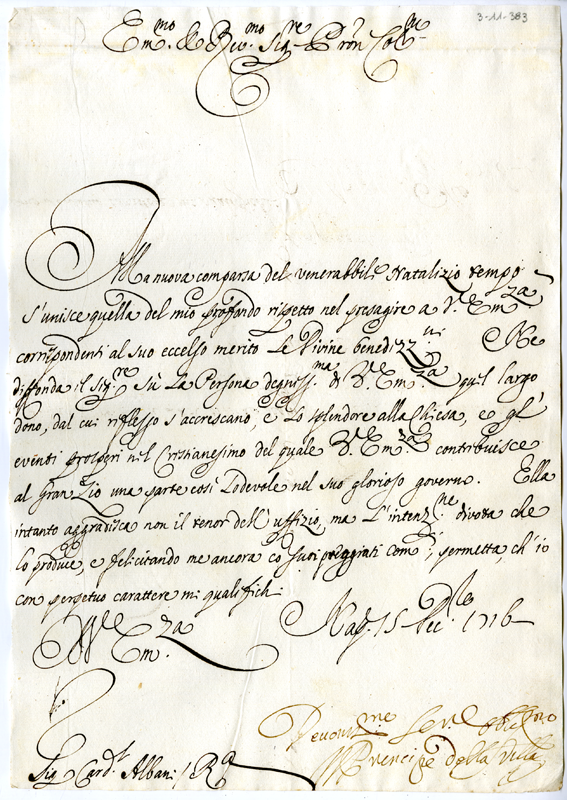 3-11-383
Em.mo & Rev.mo Sig.re Pron Col.mo
Alla nuova comparsa del venerabbile Natalizio tempo
s'unisce quella del mio profondo rispetto nel presagire a V. Em.za
corrispondenti al suo eccelso merito Le Divine benediz.ni Ne
diffonda il Sig.re sù La Persona degniss.ma di V. Em.za quel largo
dono, dal cui riflesso s'accriscano, e Lo splendore alla Chiesa, e gl'
eventi prosperi nel Cristianesimo del quale V. Em.za contribuisce
al gran Zio una parte così Lodevole nel suo glorioso governo. Ella
intanto aggradisca non il tenor dell'uffizio, ma L'intenz.ne divota che
lo produce, e felicitando me ancora co suoi preggiati Com.di, permetta, ch'io
con perpetuo carattere mi qualifichi
Di V. Em.za Nap. 15 Dec.bre 1716
Devotis.mo Ser.e oblig.mo
Sig. Card.l Albani / R.a Prencipe della Villa